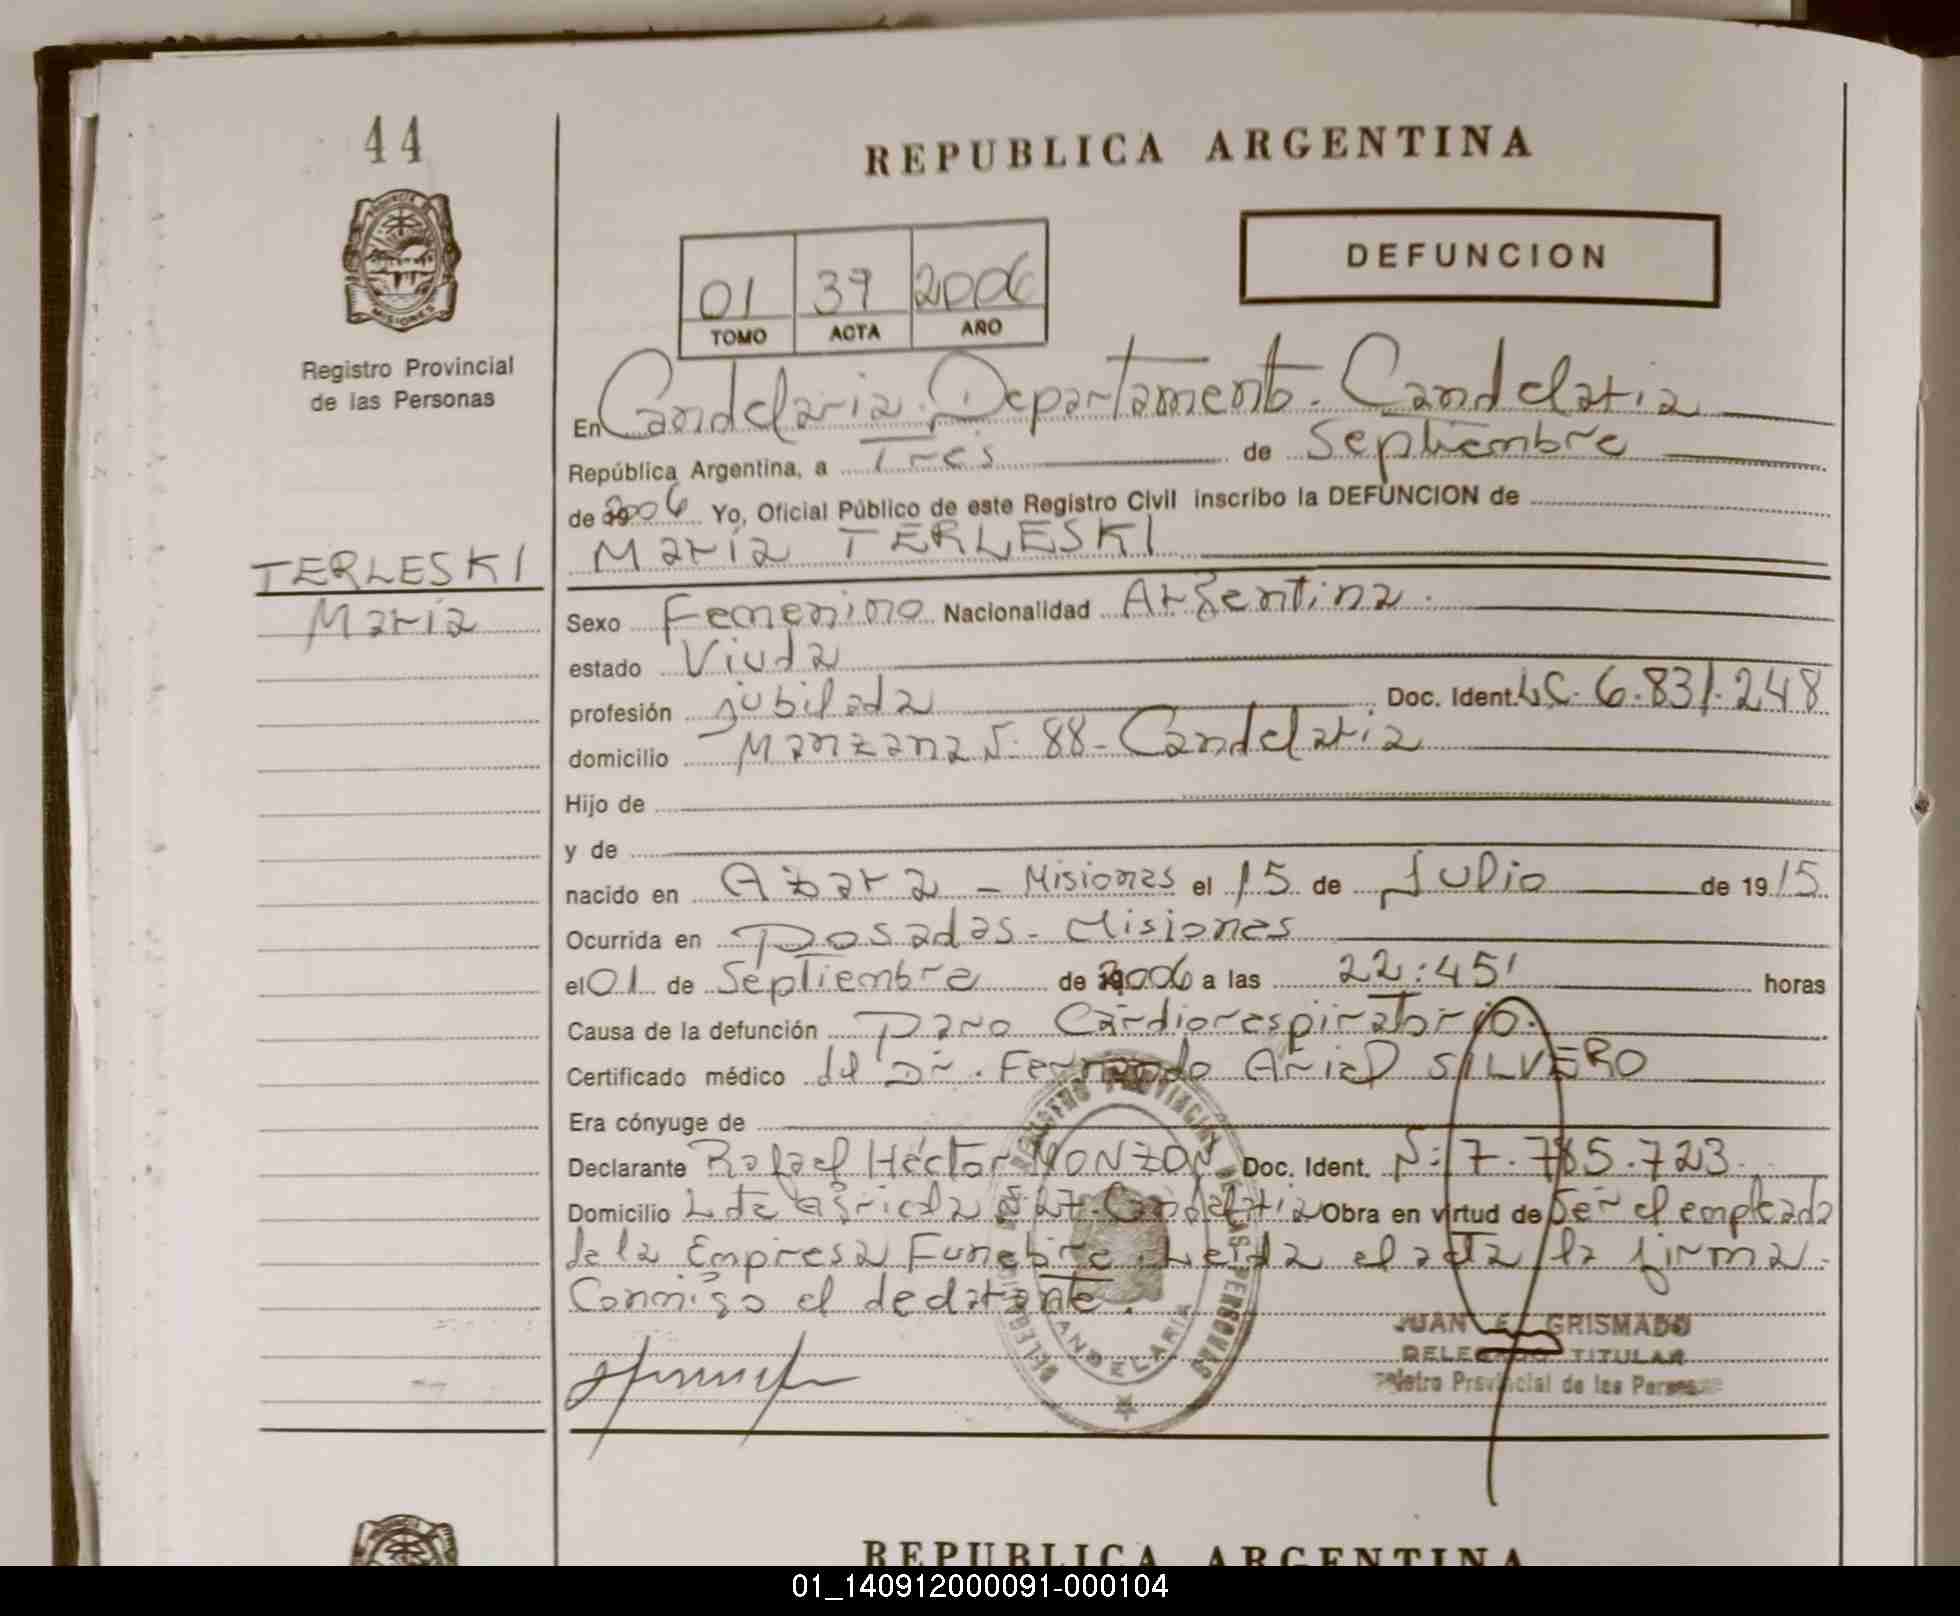 44
REPUBLICA ARGENTINA
DEFUNCION
01 37 2006
TOMO ACTA AÑO
PROVINCIA
MISIONES
Registro Provincial
de las Personas
En Candelaria. Departamento. Candelaria
República Argentina, a Tres de Septiembre
de 2006 Yo, Oficial Público de este Registro Civil inscribo la DEFUNCION de
María TERLESKI
TERLESKI
María
Sexo Femenino Nacionalidad Argentina.
estado Viuda
profesión jubilada Doc. Ident. LC. 6.831.248
domicilio Manzana N: 88 - Candelaria
Hijo de
y de
nacido en Azara - Misiones el 15 de Julio de 1915
Ocurrida en Posadas - Misiones
el 01 de Septiembre de 2006 a las 22:45' horas
Causa de la defunción Paro Cardiorespiratorio.
Certificado médico del Dr. Fernando Ariel SILVERO
Era cónyuge de
Declarante Rafael Héctor MONZON Doc. Ident. N: 7.785.723.
Domicilio Lote Agricola N: 27 - Candelaria Obra en virtud de Ser el empleado
de la Empresa Funebre. Leida el acta la firma
Conmigo el declarante.
REGISTRO PROVINCIAL DE LAS PERSONAS
CANDELARIA
JUAN E. GRISMADO
DELEGADO TITULAR
Registro Provincial de las Personas
REPUBLICA ARGENTINA
01_140912000091-000104